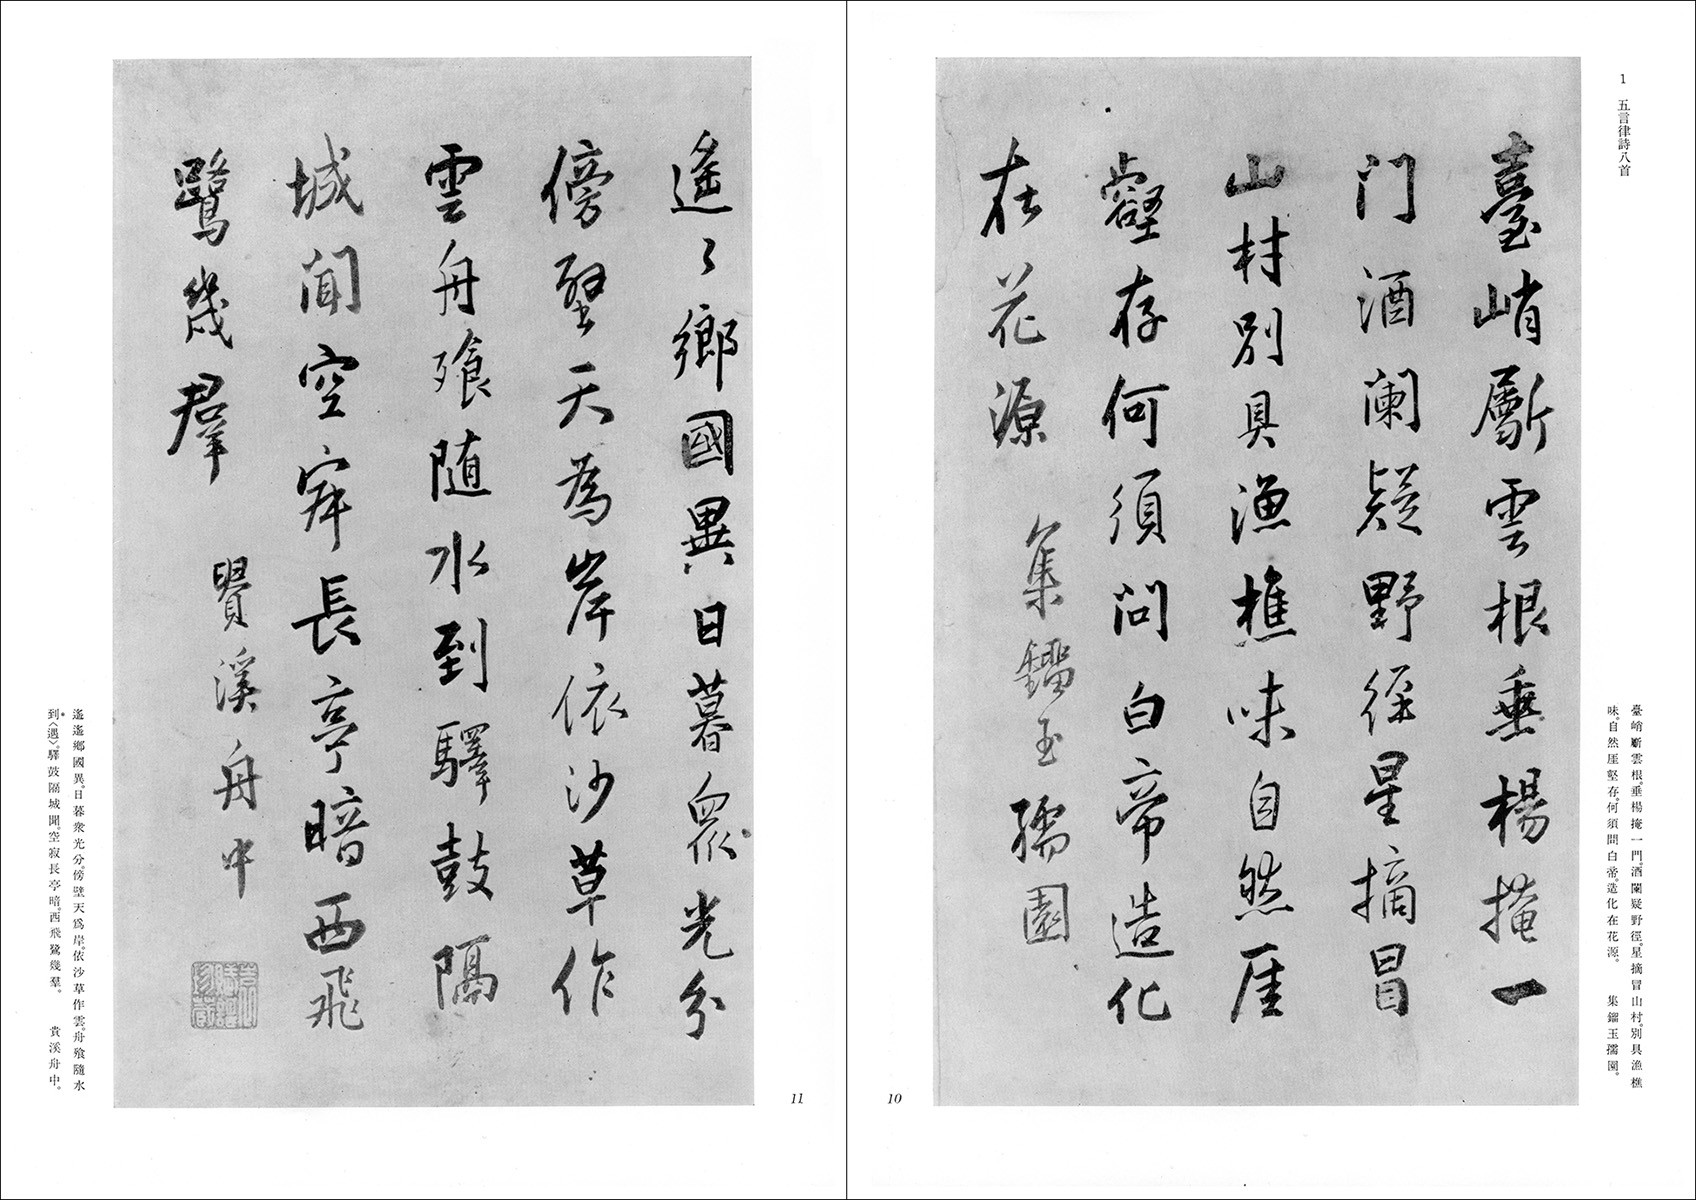 1 五言律詩八首
臺峭斸雲根垂楊掩一
门酒阑疑野径星摘冒
山村別具漁樵味自然厓
壑存何須问白帝造化
在花源
集鐂玉孺園
臺峭斸雲根。垂楊掩一門。酒闌疑野徑。星摘冒山村。別具漁樵
味。自然厓壑存。何須問白帝。造化在花源。 集鐂玉孺園。
10
遙〻鄉國異日暮衆光分
傍壁天為岸依沙草作
雲舟飧随水到驛鼓隔
城聞空寂長亭暗西飛
鷺幾羣
貴溪舟中
遙遙鄉國異。日暮衆光分。傍壁天爲岸。依沙草作雲。舟飧隨水
到〈遇〉。驛鼓隔城聞。空寂長亭暗。西飛鷺幾羣。 貴溪舟中。
11